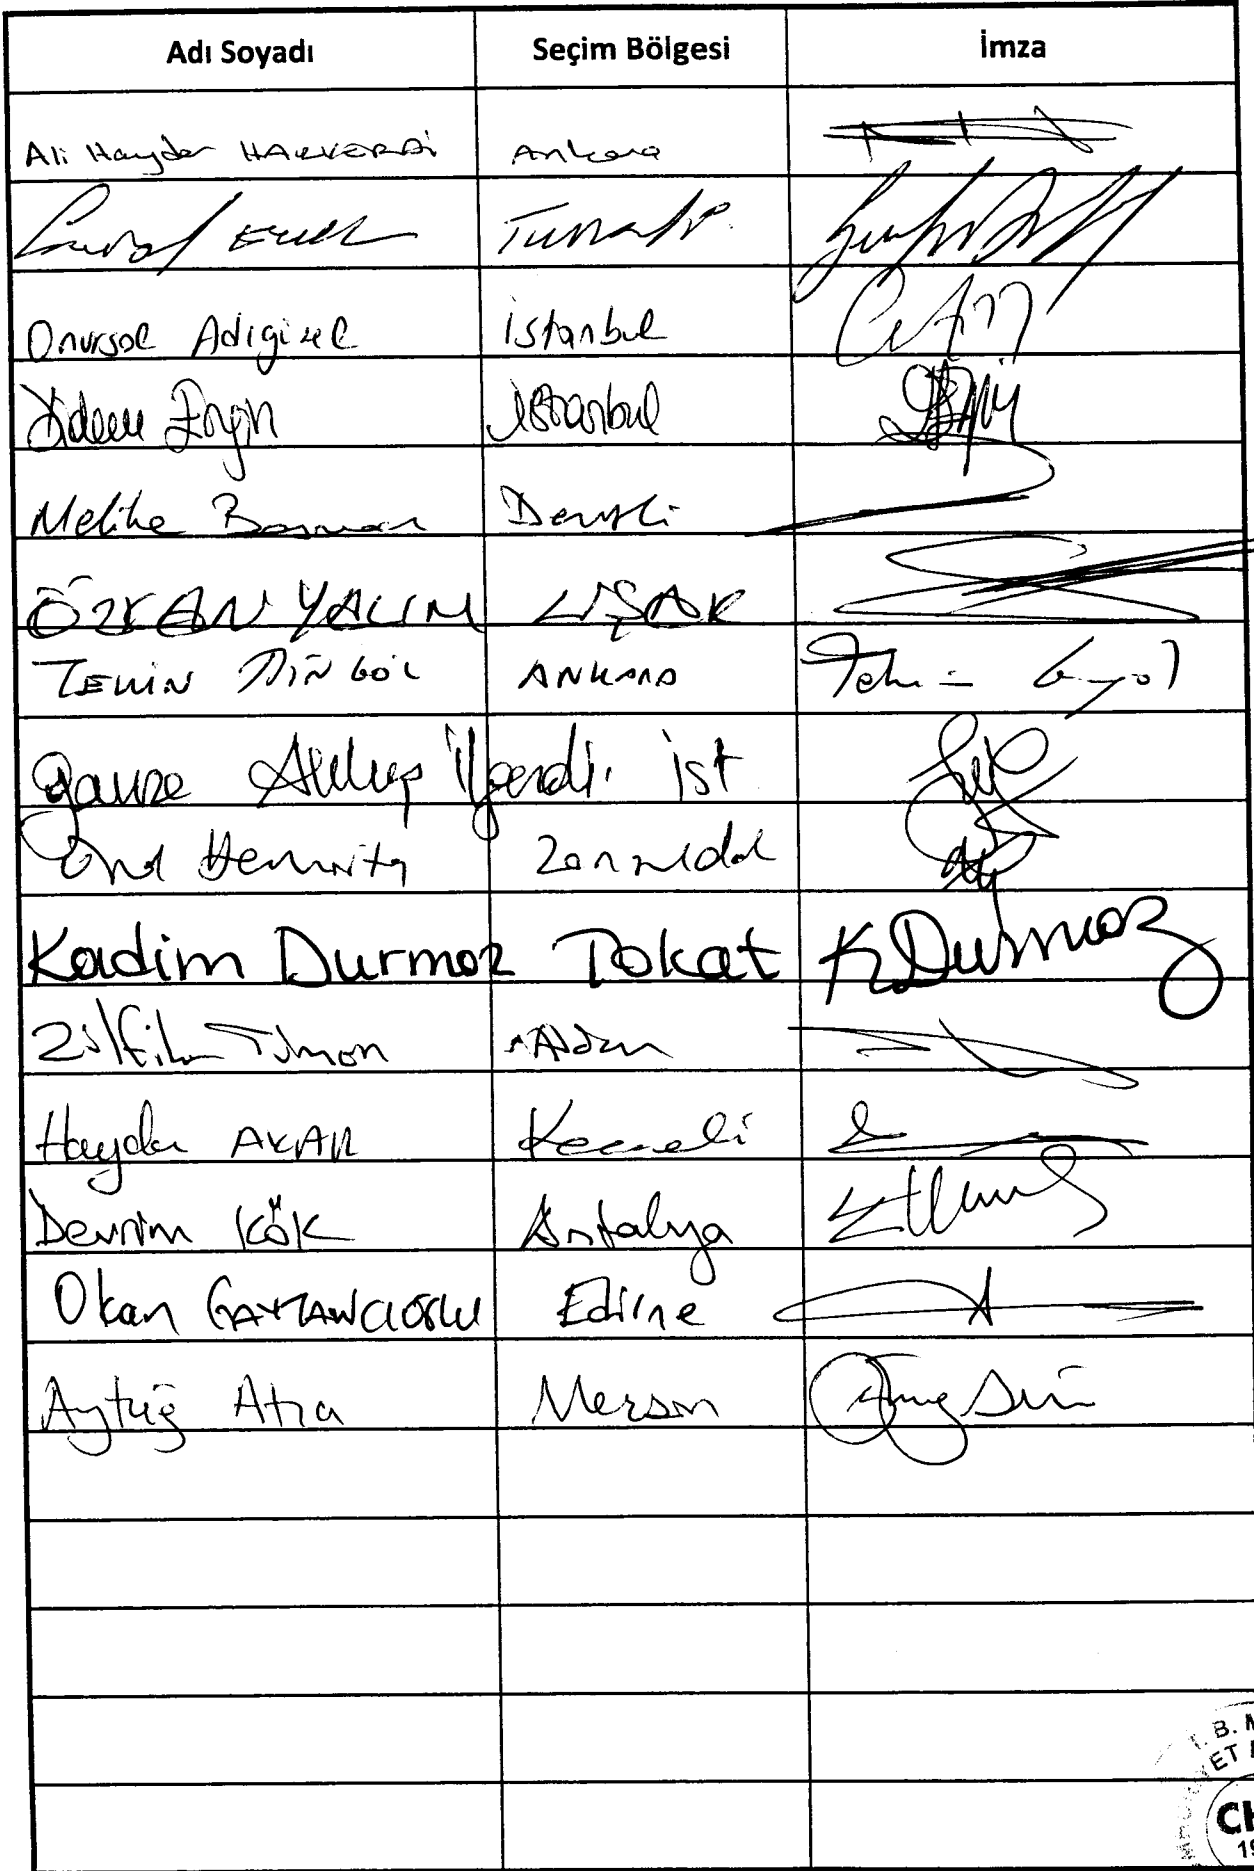 Adı Soyadı Seçim Bölgesi İmza
Ali Haydar HAKVERDİ Ankara
Tunceli
Onursal Adıgüzel İstanbul
Didem Engin İstanbul
Melike Basmacı Denizli
ÖZKAN YALIM UŞAK
TEKİN BİNGÖL ANKARA Tekin Bingöl
Gamze Akkuş İlgezdi İst
Ünal Demirtaş Zonguldak
Kadim Durmaz Tokat K.Durmaz
Haydar AKAR Kocaeli
Devrim KÖK Antalya
Okan GAYTANCIOĞLU Edirne
Aytuğ Atıcı Mersin
CH